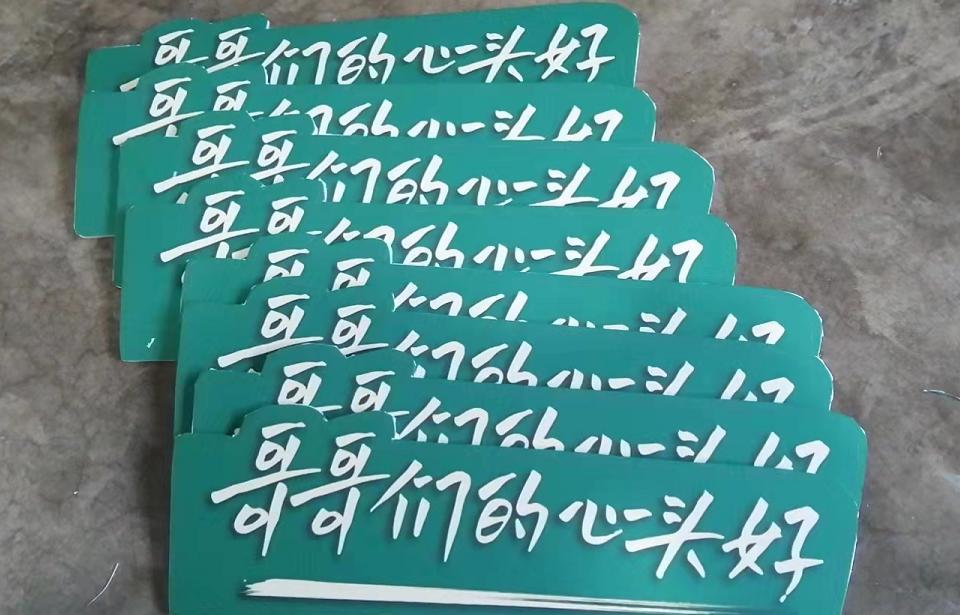 哥哥们的心头好
哥哥们的心头好
哥哥们的心头好
哥哥们的心头好
哥哥们的心头好
哥哥们的心头好
哥哥们的心头好
哥哥们的心头好